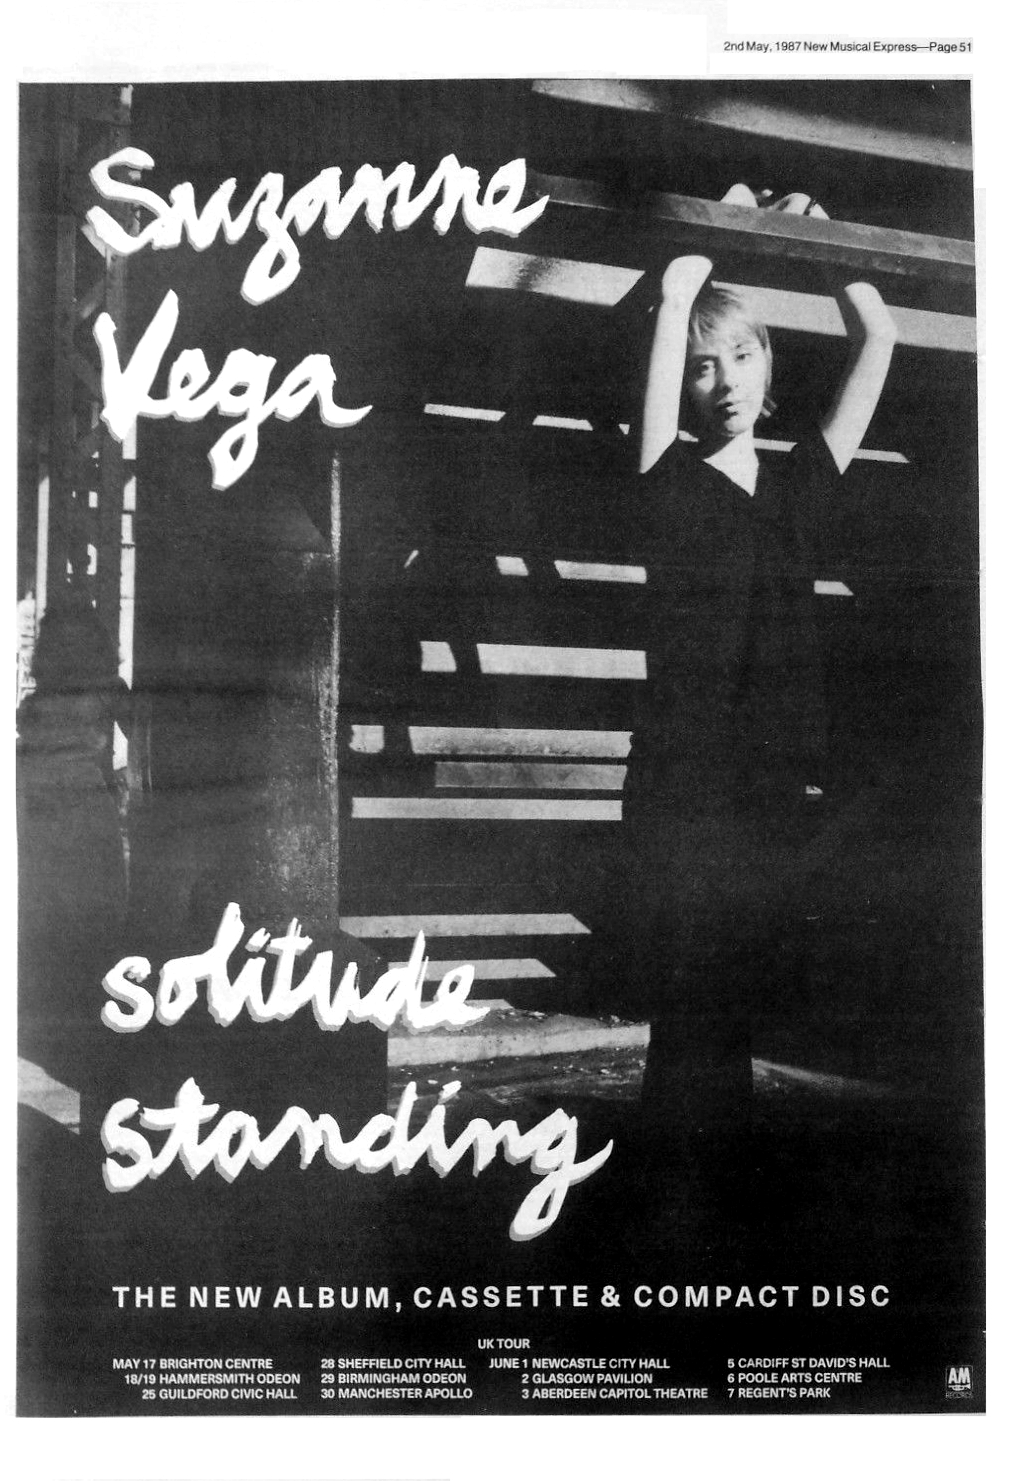 2nd May, 1987 New Musical Express—Page 51
Suzanne
Vega
solitude
standing
THE NEW ALBUM, CASSETTE & COMPACT DISC
UK TOUR
MAY 17 BRIGHTON CENTRE
18/19 HAMMERSMITH ODEON
25 GUILDFORD CIVIC HALL
28 SHEFFIELD CITY HALL
29 BIRMINGHAM ODEON
30 MANCHESTER APOLLO
JUNE 1 NEWCASTLE CITY HALL
2 GLASGOW PAVILION
3 ABERDEEN CAPITOL THEATRE
5 CARDIFF ST DAVID'S HALL
6 POOLE ARTS CENTRE
7 REGENT'S PARK
AM
RECORDS